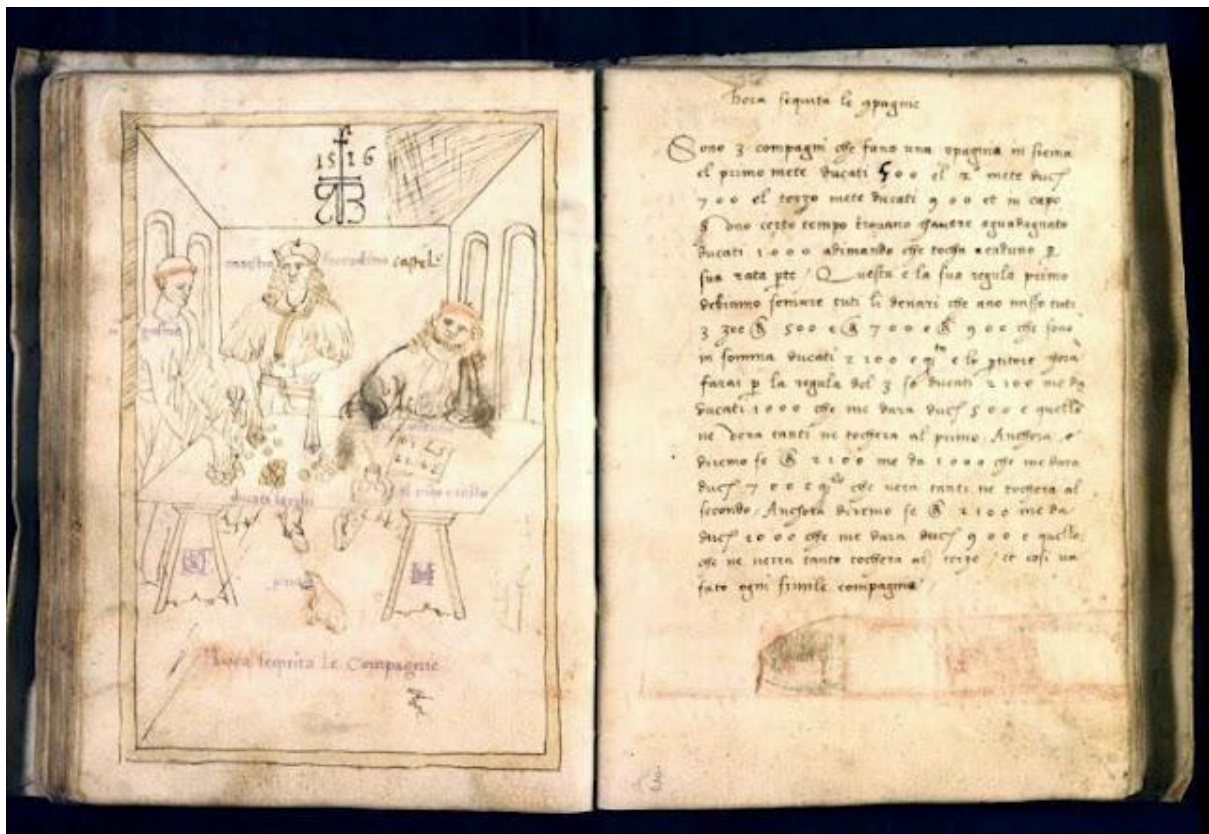 1516
maestro
castel
Hora sequita le Compagnie
hora sequita le 9pagnie
Sono 3 compagni che fano una 9pagnia in siema
el primo mete ducati 500 el 2º mete duc
700 el terzo mete ducati 900 et in capo
certo tempo trovano havere aguadagnato
ducati 1000 adimando che tocha a caduno p
sua rata pte / Questa e la sua regula primo
debiamo sumare tuti li denari che ano misso tuti
3 500 e 700 e 900 che sono
in somma ducati 2100 e e lo ptitore hora
farai p la regula del 3 se ducati 2100 me da
ducati 1000 che me dara duc 500 e quello
ne vera tanti ne tochera al primo. Anchora
diremo se 2100 me da 1000 che me dara
duc 700 e che vera tanti ne tochera al
secondo / Anchora diremo se 2100 me da
duc 1000 che me dara duc 900 e quello
che ne verra tanto tochera al terzo / et cosi va
fato ogni simile compagnia /